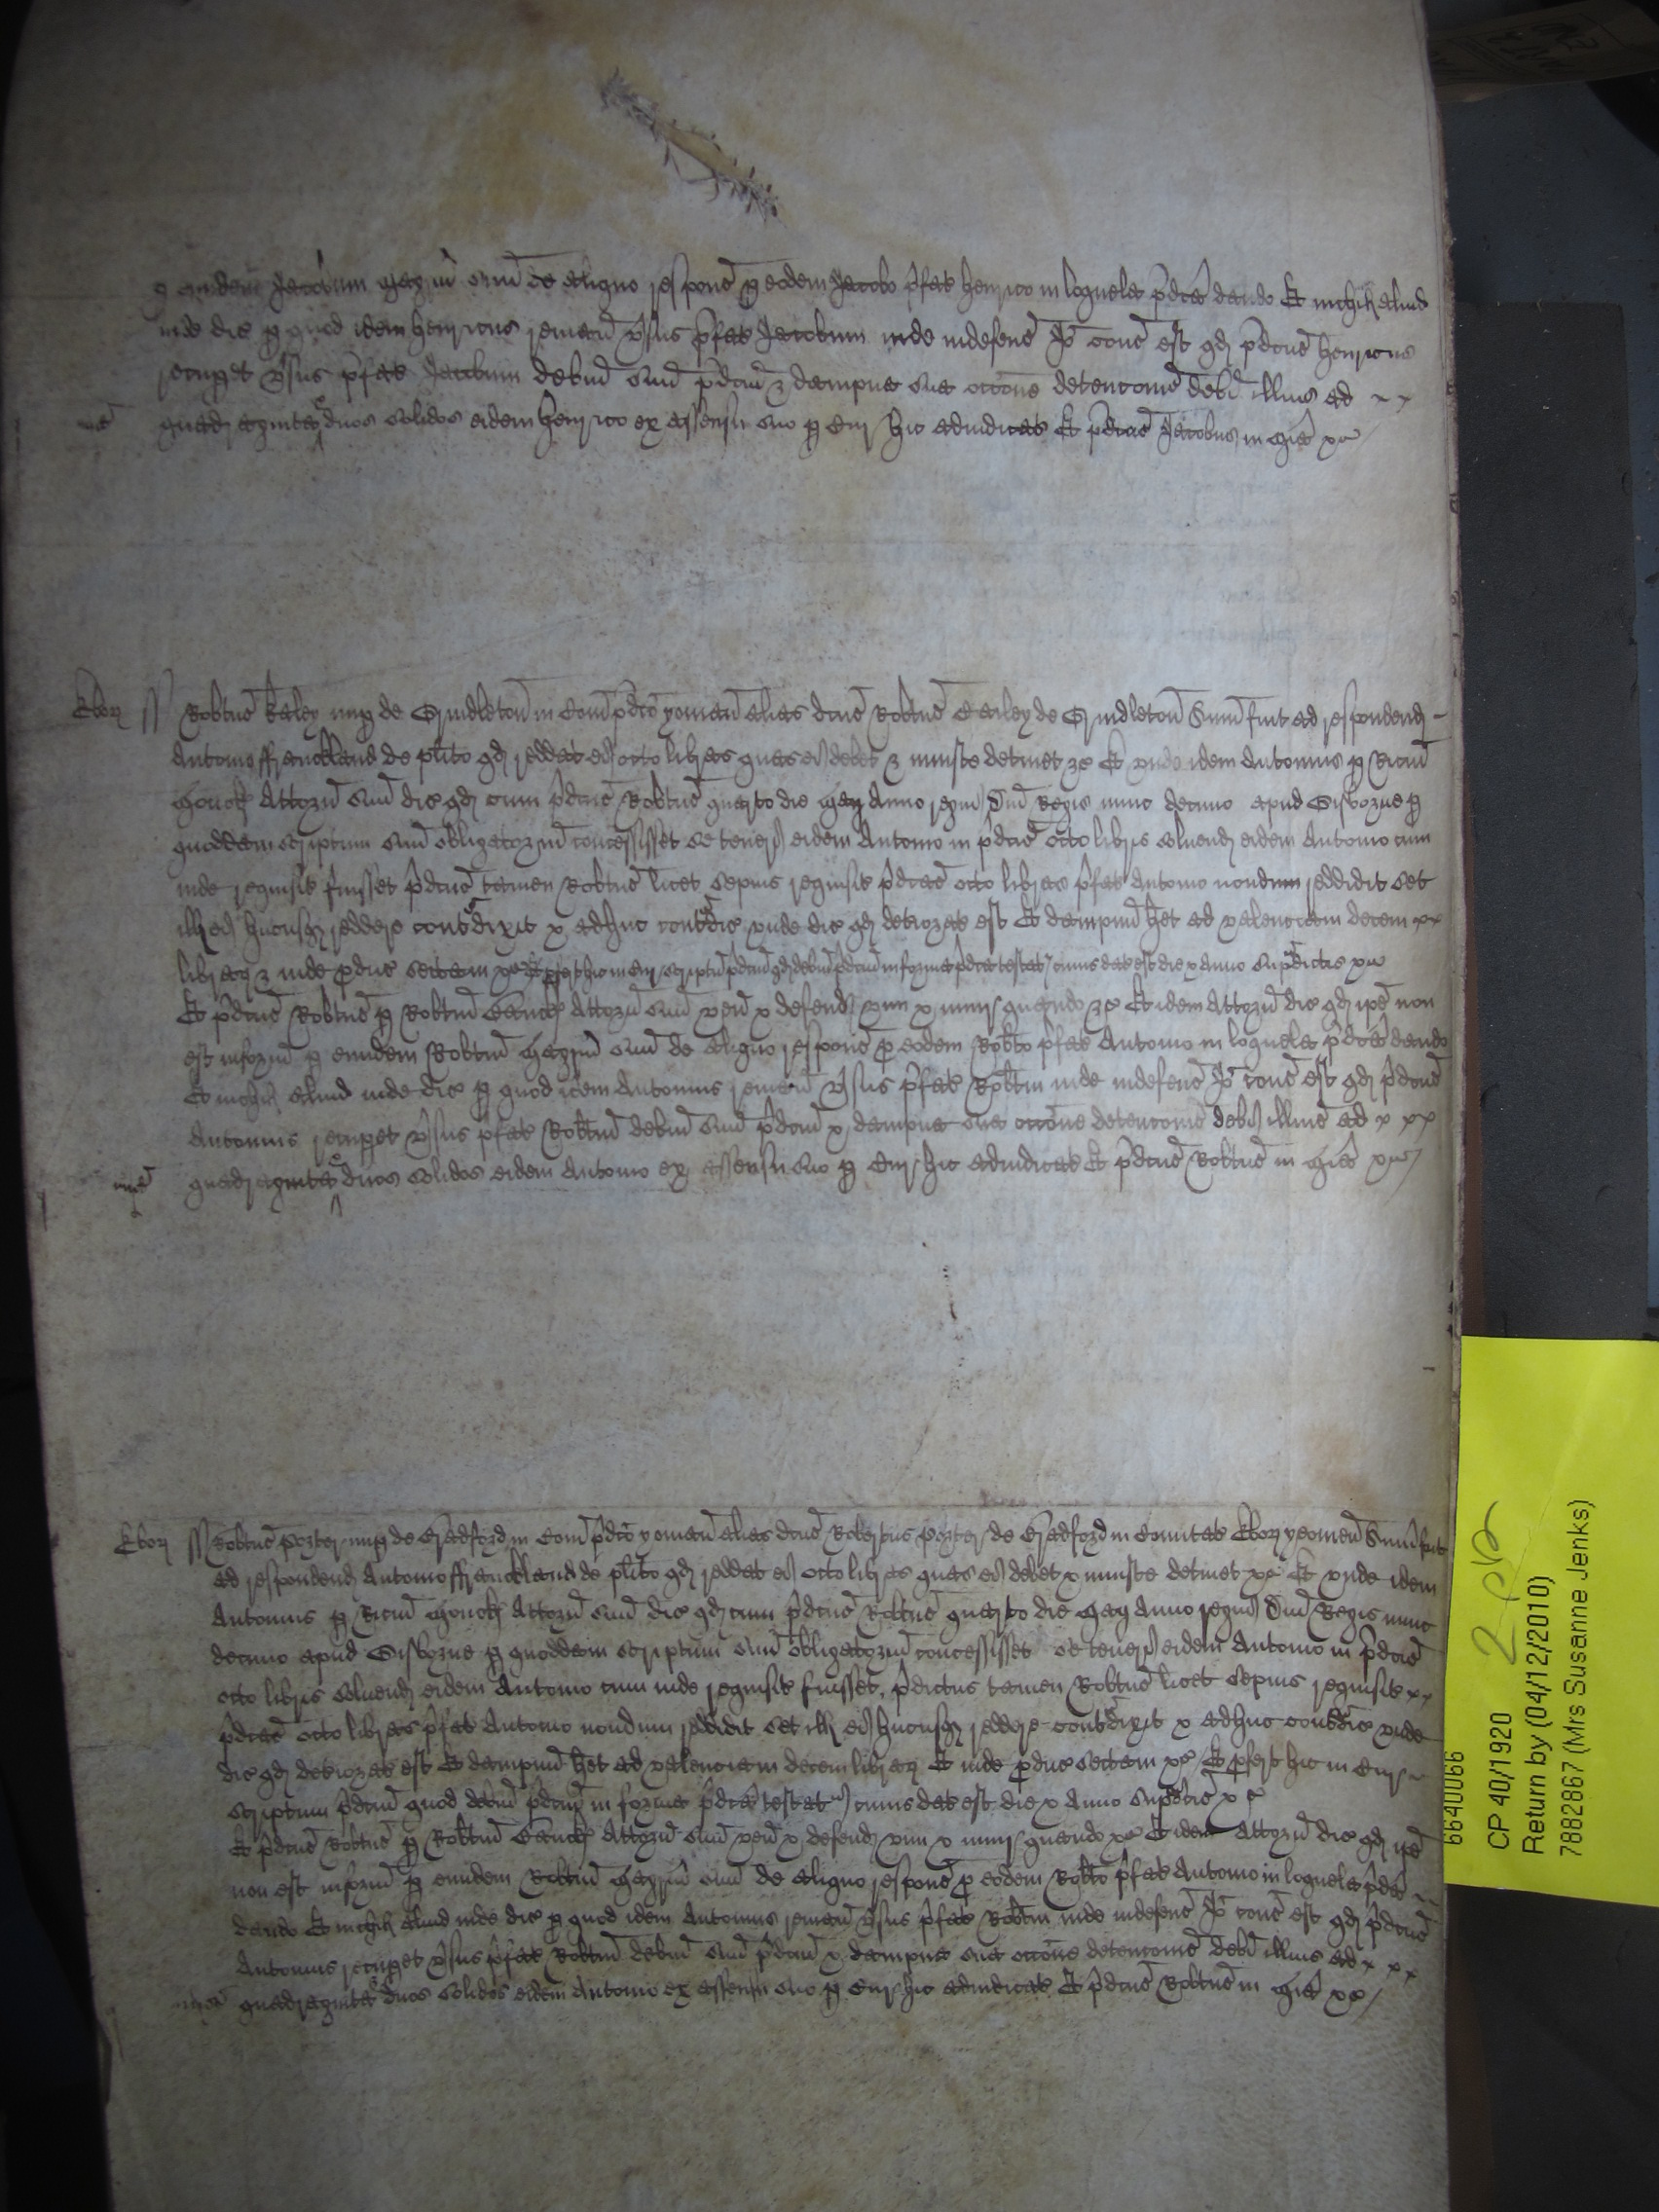 p eundem Jacobum Magrm suu de aliquo respons p eodem Jacobo pfat Henrico in loquela pdca dando Et nichil aliud
inde dic p quod idem Henricus remanet vsus pfat Jacobum inde indefens Io cons est qd pdcus Henricus
recupet vsus pfat Jacobum debitu suu pdcm & dampna sua occone detenconis debi illius ad
quadraginta & duos solidos eidem Henrico ex assensu suo p Cur hic adiudicat Et pdcus Jacobus in mia &c
mia
Ebor ss Robtus Kaley nup de Gryndleton in Com pdco yoman alias dcus Robtus Cailey de Grindleton Sum fuit ad respondend
Antonio ffranckland de plito qd reddat ei octo libras quas ei debet & iniuste detinet &c Et vnde idem Antonius p Ricm
Houck Attorn suu dic qd cum pdcus Robtus quarto die Maij Anno regni Dni Regis nunc decimo apud Gisborne p
quoddam scriptum suu obligatoriu concessisset se teneri eidem Antonio in pdcis octo libris soluend eidem Antonio cum
inde requisit fuisset pdcus tamen Robtus licet sepius requisit pdcas octo libras pfat Antonio nondum reddidit set
ill ei hucusq reddere contdixit & adhuc contdic vnde dic qd deteriorat est Et dampnu het ad valenciam decem
librar & inde pduc sectam &c Et pfert hic in Cur scriptu pdcm qd debitu pdcm in forma pdca testat cuius dat est die & anno supadictis &c
Et pdcus Robtus p Robtm Attorn suu ven & defend vim & iniur quando &c Et idem Attorn dic qd ipe non
est informat p eundem Robtum Magrm suu de aliquo respons p eodem Robto pfat Antonio in loquela pdca dando
Et nichil aliud inde dic p quod idem Antonius remanet vsus pfat Robtm inde indefens Io cons est qd pdcus
Antonius recupet vsus pfat Robtum debitu suu pdcm & dampna sua occone detenconis debi illius ad
quadraginta & duos solidos eidem Antonio ex assensu suo p Cur hic adiudicat Et pdcus Robtus in mia &c
mia
Ebor ss Robtus Porter nup de Bradford in Com pdco yoman alias dcus Robertus Porter de Bradford in Comitat Ebor yeoman Sum fuit
ad respondend Antonio ffranckland de plito qd reddat ei octo libras quas ei debet & iniuste detinet &c Et vnde idem
Antonius p Ricm Houck Attorn suu dic qd cum pdcus Robtus quarto die Maij Anno regni Dni Regis nunc
decimo apud Gisborne p quoddam scriptum suu obligatoriu concessisset se teneri eidem Antonio in pdcis
octo libris soluend eidem Antonio cum inde requisit fuisset, pdictus tamen Robtus licet sepius requisit
pdcas octo libras pfat Antonio nondum reddidit set ill ei hucusq reddere contdixit & adhuc contdic vnde
dic qd deteriorat est Et dampnu het ad valenciam decem librar Et inde pduc sectam &c Et pfert hic in Cur
scriptum pdcm quod debitu pdcm in forma pdca testat cuius dat est die & Anno supadcis &c
Et pdcus Robtus p Robtum Attorn suu ven & defend vim & iniur quando &c Et idem Attorn dic qd ipe
non est informat p eundem Robtum Magrm suu de aliquo respons p eodem Robto pfat Antonio in loquela pdca
dando Et nichil aliud inde dic p quod idem Antonius remanet vsus pfat Robtm inde indefens Io cons est qd pdcus
Antonius recupet vsus pfat Robtum debitu suu pdcm & dampna sua occone detenconis debi illius ad
quadraginta & duos solidos eidem Antonio ex assensu suo p Cur hic adiudicat Et pdcus Robtus in mia &c
mia
6640066
CP 40/1920
Return by (04/12/2010)
7882867 (Mrs Susanne Jenks)